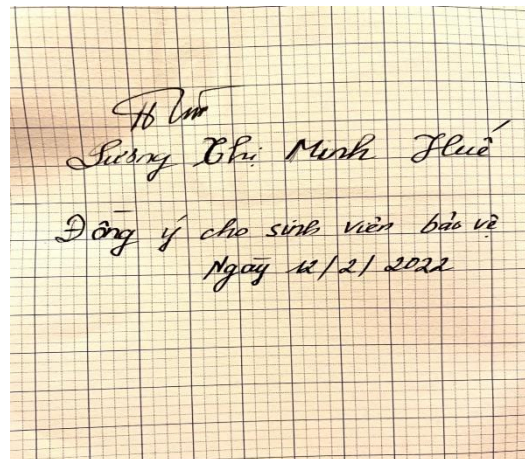 Lương Thị Minh Huế
Đồng ý cho sinh viên bảo vệ
Ngày 12/2/2022